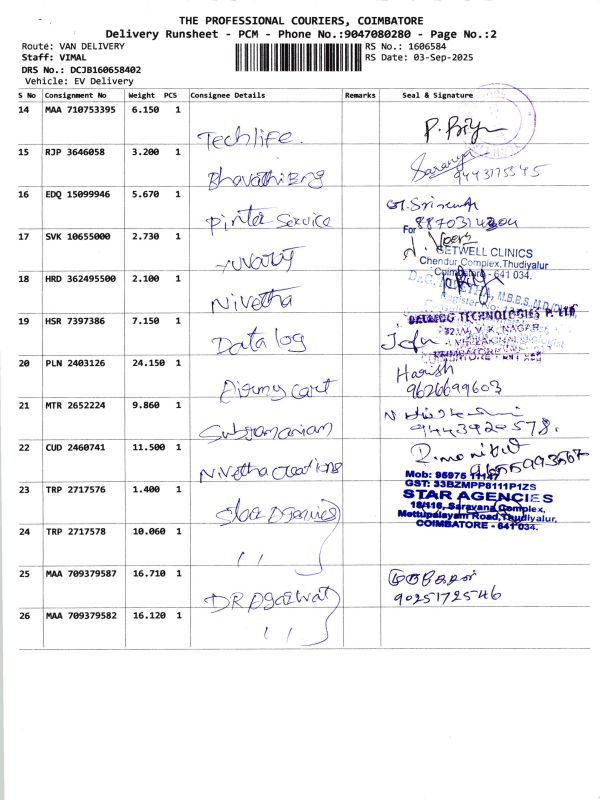 THE PROFESSIONAL COURIERS, COIMBATORE
Delivery Runsheet - PCM - Phone No.:9047080280 - Page No.:2
Route: VAN DELIVERY RS No.: 1606584
Staff: VIMAL RS Date: 03-Sep-2025
DRS No.: DCJB160658402
Vehicle: EV Delivery
S No Consignment No Weight PCS Consignee Details Remarks Seal & Signature
14 MAA 710753395 6.150 1
Techlife.
15 RJP 3646058 3.200 1
Bharathi Eng
9443175545
16 EDQ 15099946 5.670 1
Printer Service
8870314204
17 SVK 10655000 2.730 1
For
GETWELL CLINICS
Chendur Complex,Thudiyalur
Coimbatore - 641 034.
18 HRD 362495500 2.100 1
Nivetha
M.B.B.S,M.D
19 HSR 7397386 7.150 1
Data log
DATALOG TECHNOLOGIES P. LTD
NAGAR
20 PLN 2403126 24.150 1
cart
Harish
9626699603
21 MTR 2652224 9.860 1
Subramaniam
9443920578.
22 CUD 2460741 11.500 1
Nivetha creations
23 TRP 2717576 1.400 1
Star Agencies
Mob: 95975 11147
GST: 33BZMPP8111P1ZS
STAR AGENCIES
18/116, Saravana Complex,
Mettupalayam Road,Thudiyalur,
COIMBATORE - 641 034.
24 TRP 2717578 10.060 1
,,
25 MAA 709379587 16.710 1
DR Agarwal
9025172546
26 MAA 709379582 16.120 1
,,